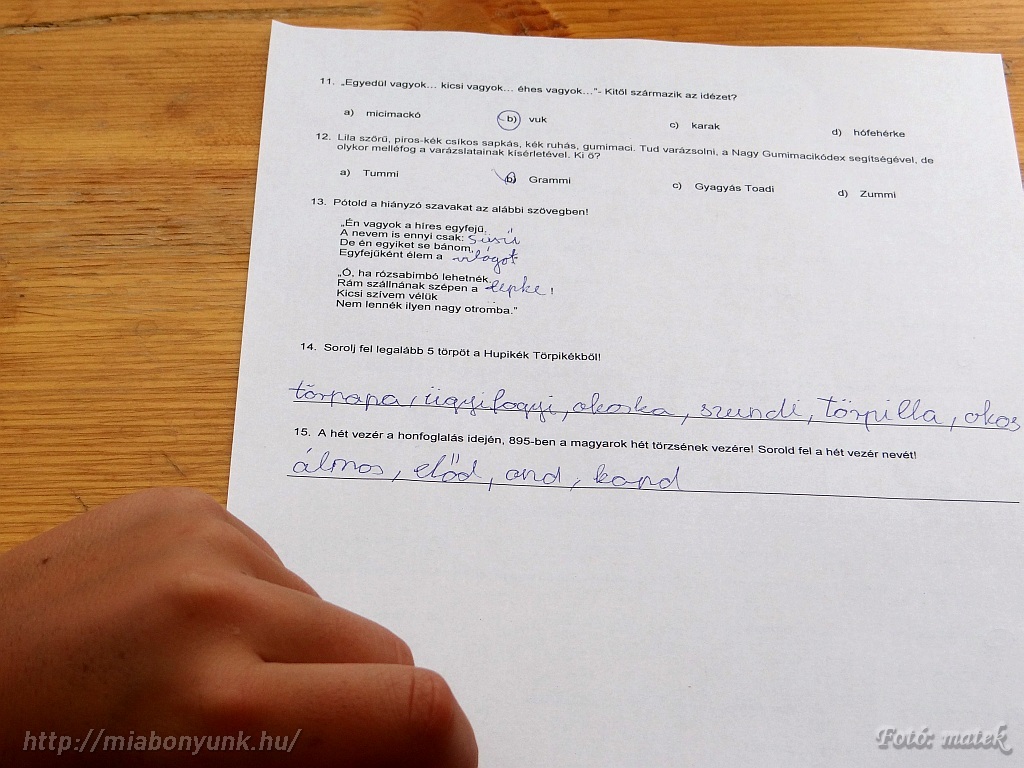 11. „Egyedül vagyok... kicsi vagyok... éhes vagyok..."- Kitől származik az idézet?
a) micimackó b) vuk c) karak d) hófehérke
12. Lila szőrű, piros-kék csíkos sapkás, kék ruhás, gumimaci. Tud varázsolni, a Nagy Gumimacikódex segítségével, de
olykor melléfog a varázslatainak kísérletével. Ki ő?
a) Tummi b) Grammi c) Gyagyás Toadi d) Zummi
13. Pótold a hiányzó szavakat az alábbi szövegben!
„Én vagyok a híres egyfejű,
A nevem is ennyi csak: süsü
De én egyiket se bánom,
Egyfejűként élem a világot
„Ó, ha rózsabimbó lehetnék,
Rám szállnának szépen a lepke!
Kicsi szívem vélük
Nem lennék ilyen nagy otromba."
14. Sorolj fel legalább 5 törpöt a Hupikék Törpikékből!
törpapa, ügyifogyi, okoska, szundi, törpilla, okos
15. A hét vezér a honfoglalás idején, 895-ben a magyarok hét törzsének vezére! Sorold fel a hét vezér nevét!
álmos, előd, ond, kond
http://miabonyunk.hu/
Fotó: matek